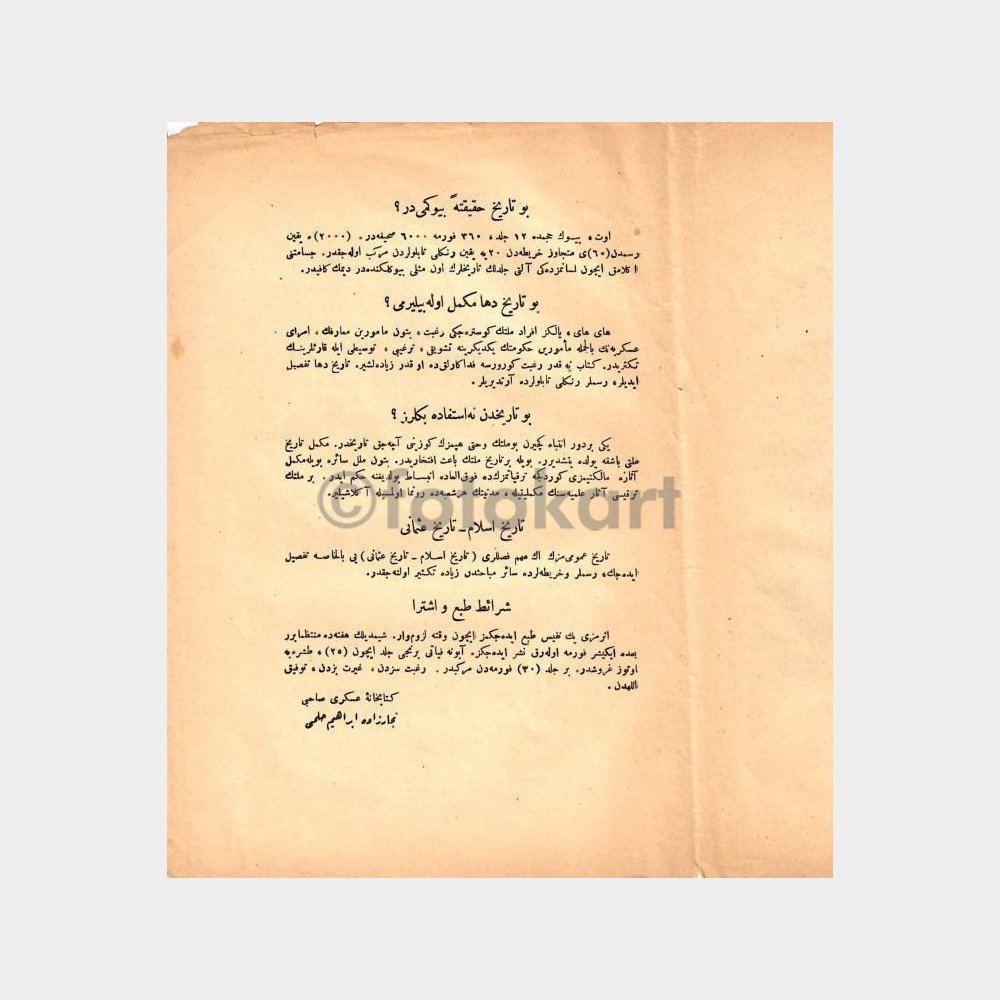 بو تاریخ حقیقتهً بیوکمی در ؟
اوت ، بیـوك حجمده ۱۲ جلد ، ۳۶۰ فورمه ۶۰۰۰ صحیفه‌در . (۲۰۰۰) ه یقین
رسمدن (۶۰)ی متجاوز خریطه‌دن ۲۰یه یقین رنکلی تابلولردن مرکب اوله‌جقدر. جسامتنی
اکلامق ایچون لسانمزده‌کی آلتی جلدلك تاریخلرك اون مثلی بیوکلکنده‌در دیمك کافیدر.
بو تاریخ دها مکمل اوله بیلیرمی ؟
های های ، یالکز افراد ملتك کوستره‌جکی رغبت ، بتون مامورین معارفك ، امرای
عسکریه‌نك بالجمله مأمورین حکومتك یکدیکرینه تشویقی ، ترغیبی ، توسیطی ایله قارئلرینـك
تکثریدر. کتاب نه قدر رغبت کورورسه فداکارلق‌ده او قدر زیاده‌لشیر. تاریخ دها تفصیل
ایدیلر، رسملر رنکلی تابلولرده آرتدیریلر.
بو تاریخدن نه‌استفاده بکلرز ؟
یکی بردور انتباه کچیرن بوملتك وحتی هپمزك کوزینی آچه‌جق تاریخدر. مکمل تاریخ
ملتی باشقه یولده یتشدیرر. بویله بر تاریخ ملتك باعث افتخاریدر. بتون ملل سائره بویله‌مکمل
آثاره مالکیتمزی کوردکجه ترقیاتمزك‌ده فوق‌العاده انبساط بولدیغنه حکم ایدر . بر ملتك
ترقیسی آثار علمیه‌سنك مکملیتیله ، مدنیتك هرشعبه‌ده رونما اولمسیله آکلاشیلیر.
©fotokart
تاریخ اسلام ـ تاریخ عثمانی
تاریخ عمومی‌مزك اك مهم فصللری ( تاریخ اسـلام ـ تاریخ عثمانی ) یی بالخاصـه تفصیل
ایده‌جك، رسملر وخریطه‌لرده سائر مباحثدن زیاده تکثیر اولنه‌جقدر.
شرائط طبع و اشترا
اثرمزی پك نفیس طبع ایده‌جکمز ایچون وقته لزوم‌وار. شیمدیلك هفته‌ده منتظماً برر
بعده ایکیشر فورمه اوله‌رق نشر ایده‌جکز. آبونه فیاتی برنجی جلد ایچون (۲۵) ، طشره‌یه
اوتوز غروشدر. بر جلد (۳۰) فورمه‌دن مرکبدر . رغبت سزدن ، غیرت بزدن ، توفیق
اللهدن .
کتابخانهٔ عسکری صاحبی
تجارزاده ابراهیم حلمی